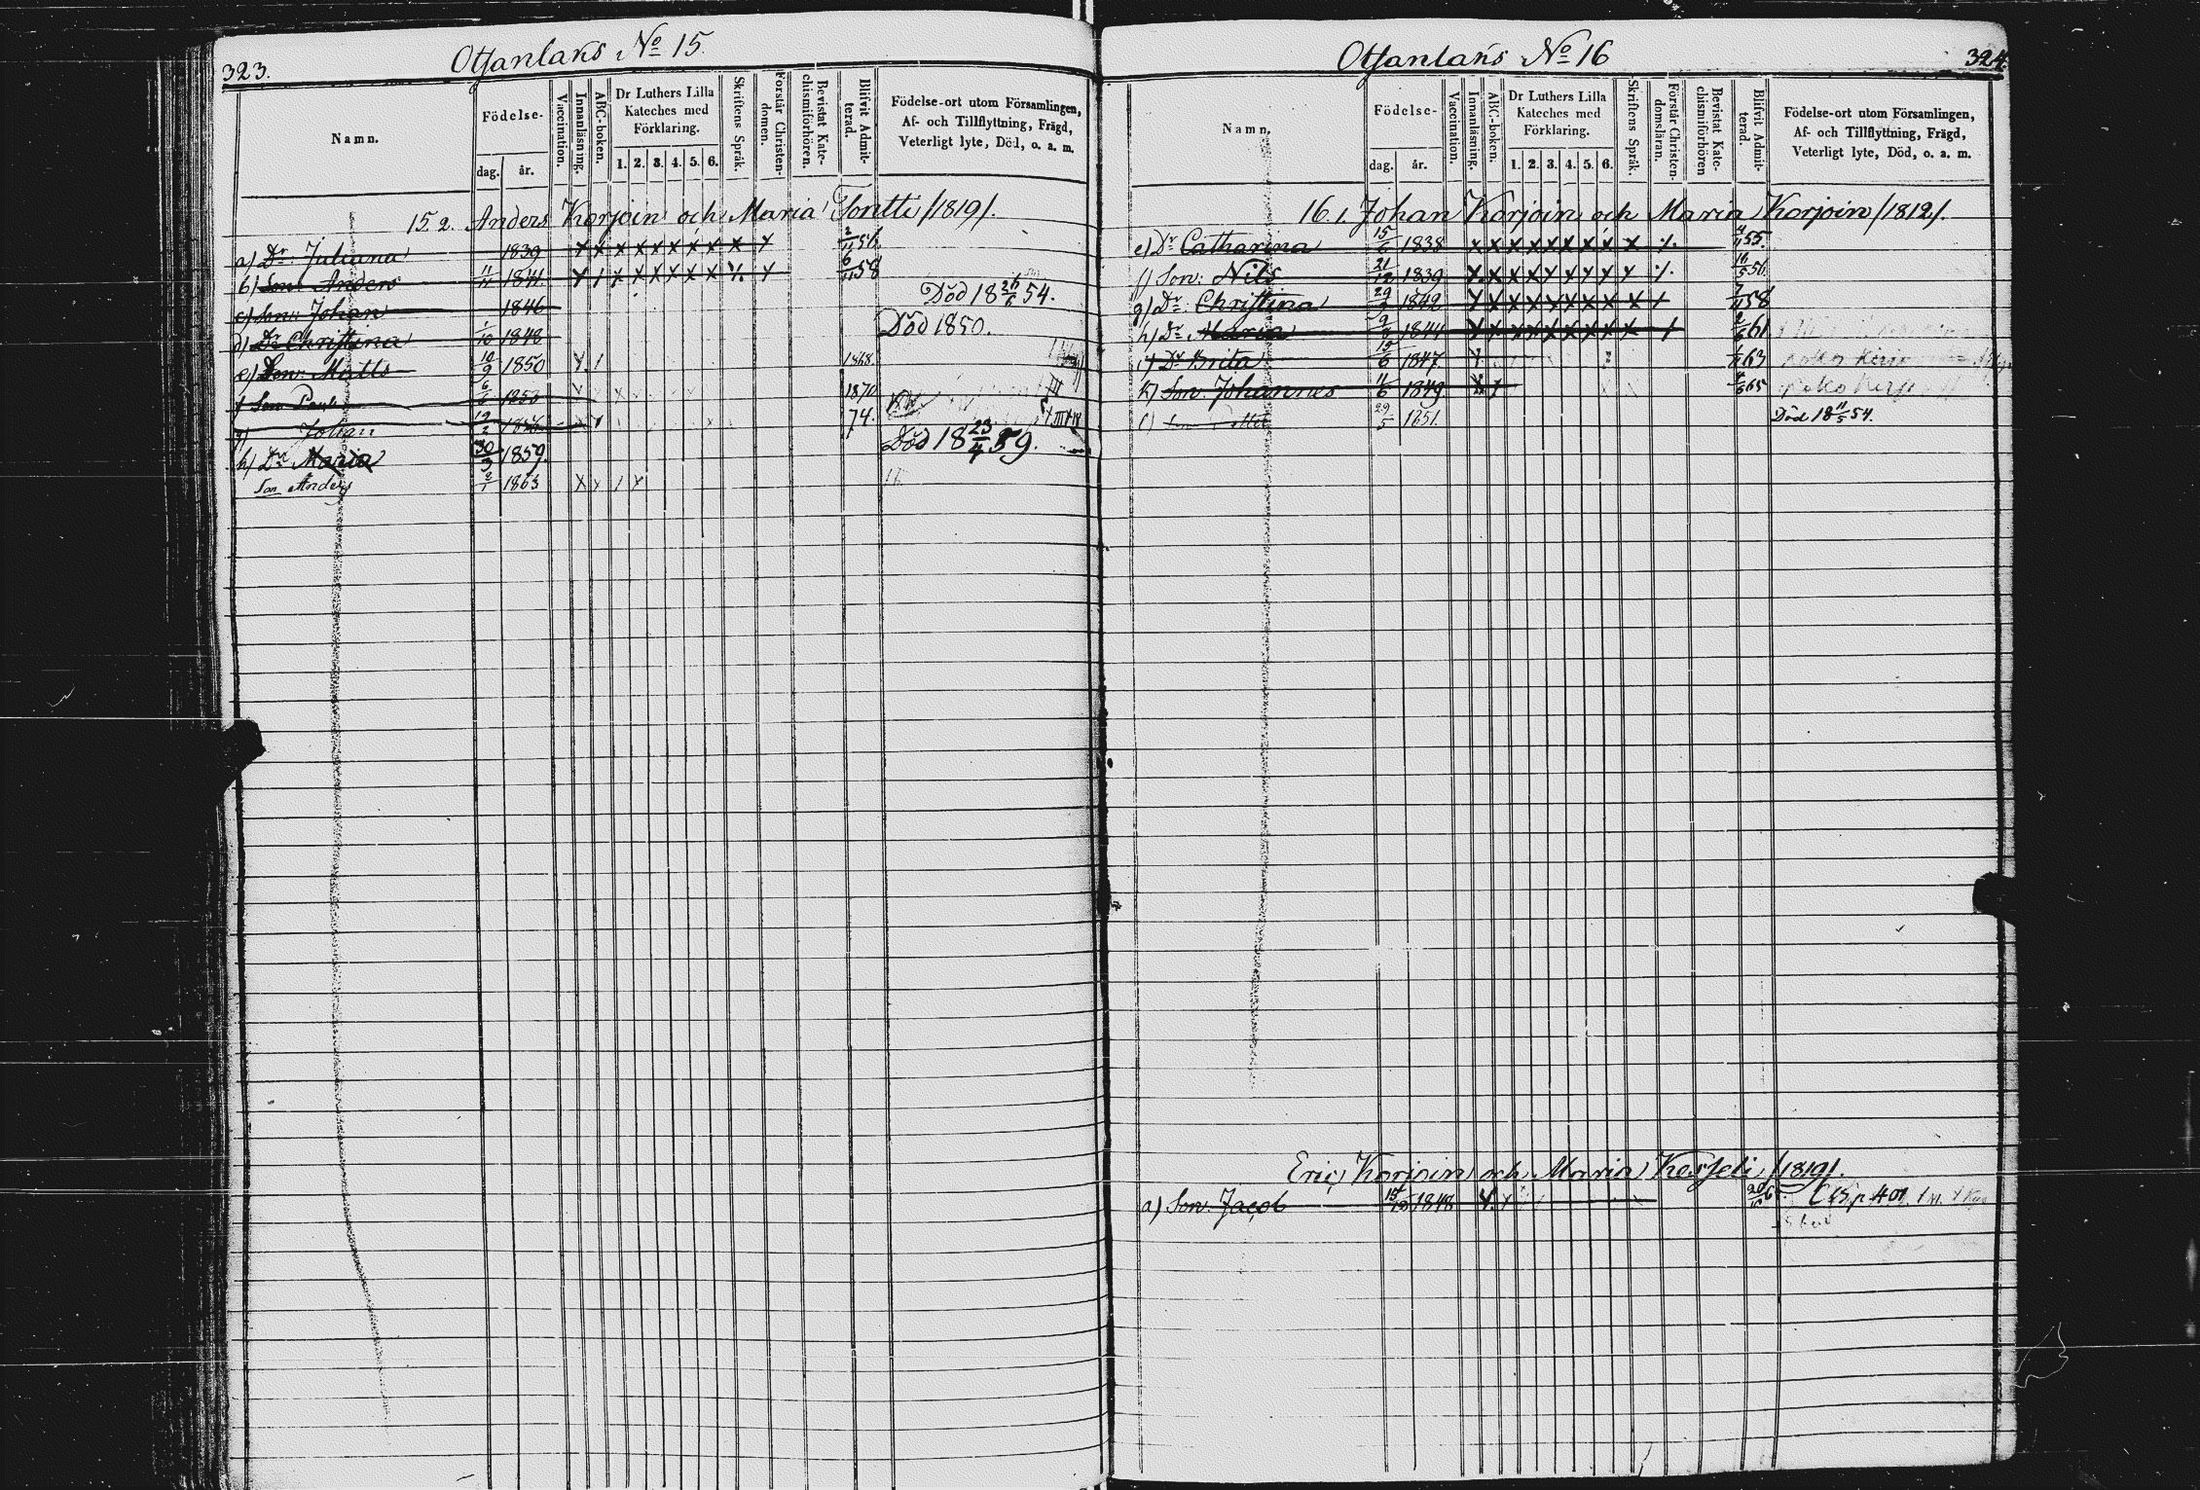 323.
Otsanlaks No 15.
Namn.
Födelse-
dag.
år.
Vaccination.
Innanläsning.
ABC-boken.
Dr Luthers Lilla
Kateches med
Förklaring.
1. 2. 3. 4. 5. 6.
Skriftens Språk.
Förstår Christen-
domen.
Bevistat Kate-
chismiförhören.
Blifvit Admit-
terad.
Födelse-ort utom Församlingen,
Af- och Tillflyttning, Frägd,
Veterligt lyte, Död, o. a. m.
15. 2. Anders Korjoin och Maria Tontti /1819/.
a) Dr. Juliana 1839 x x x x x x x x x x 2/11 56.
b) Son Anders 11/11 1841 x 1 x x x x x x x x 6/11 58
c) Son: Johan 1846 Död 18 26/6 54.
d) Dr Christina 1/10 1848 Död 1850.
e) Son: Matts 10/9 1850 x 1 1868.
f Son 6/ 1853 x 1870
g) Johan 12/2 x 1 74.
h) Dr Maria 30/3 1859. Död 18 23/4 59.
Son Anders 2/1 1863 x x 1 x
Otsanlaks No 16
324.
Namn.
Födelse-
dag.
år.
Vaccination.
Innanläsning.
ABC-boken.
Dr Luthers Lilla
Kateches med
Förklaring.
1. 2. 3. 4. 5. 6.
Skriftens Språk.
Förstår Christen-
domsläran.
Bevistat Kate-
chismiförhören
Blifvit Admit-
terad.
Födelse-ort utom Församlingen,
Af- och Tillflyttning, Frägd,
Veterligt lyte, Död, o. a. m.
16. 1. Johan Korjoin och Maria Korjoin /1812/.
e) Dr Catharina 15/6 1838 x x x x x x x x x 4/11 55.
f) Son: Nils 21/12 1839 x x x x x x x x x 16/5 56.
g) Dr: Christina 29/ 1842 x x x x x x x x x 1 7/11 58
h) Dr. Maria 9/ 1844 x x x x x x x x x 1 2/6 61
i) Dr Brita 15/6 1847 x 63
k) Son. Johannes 11/6 1849 x x 65
l) 29/5 1851. Död 18 11/5 54.
Eric Korjoin och Maria Kesseli /1819/.
a) Son. Jacob 15/10 1848 x p 401